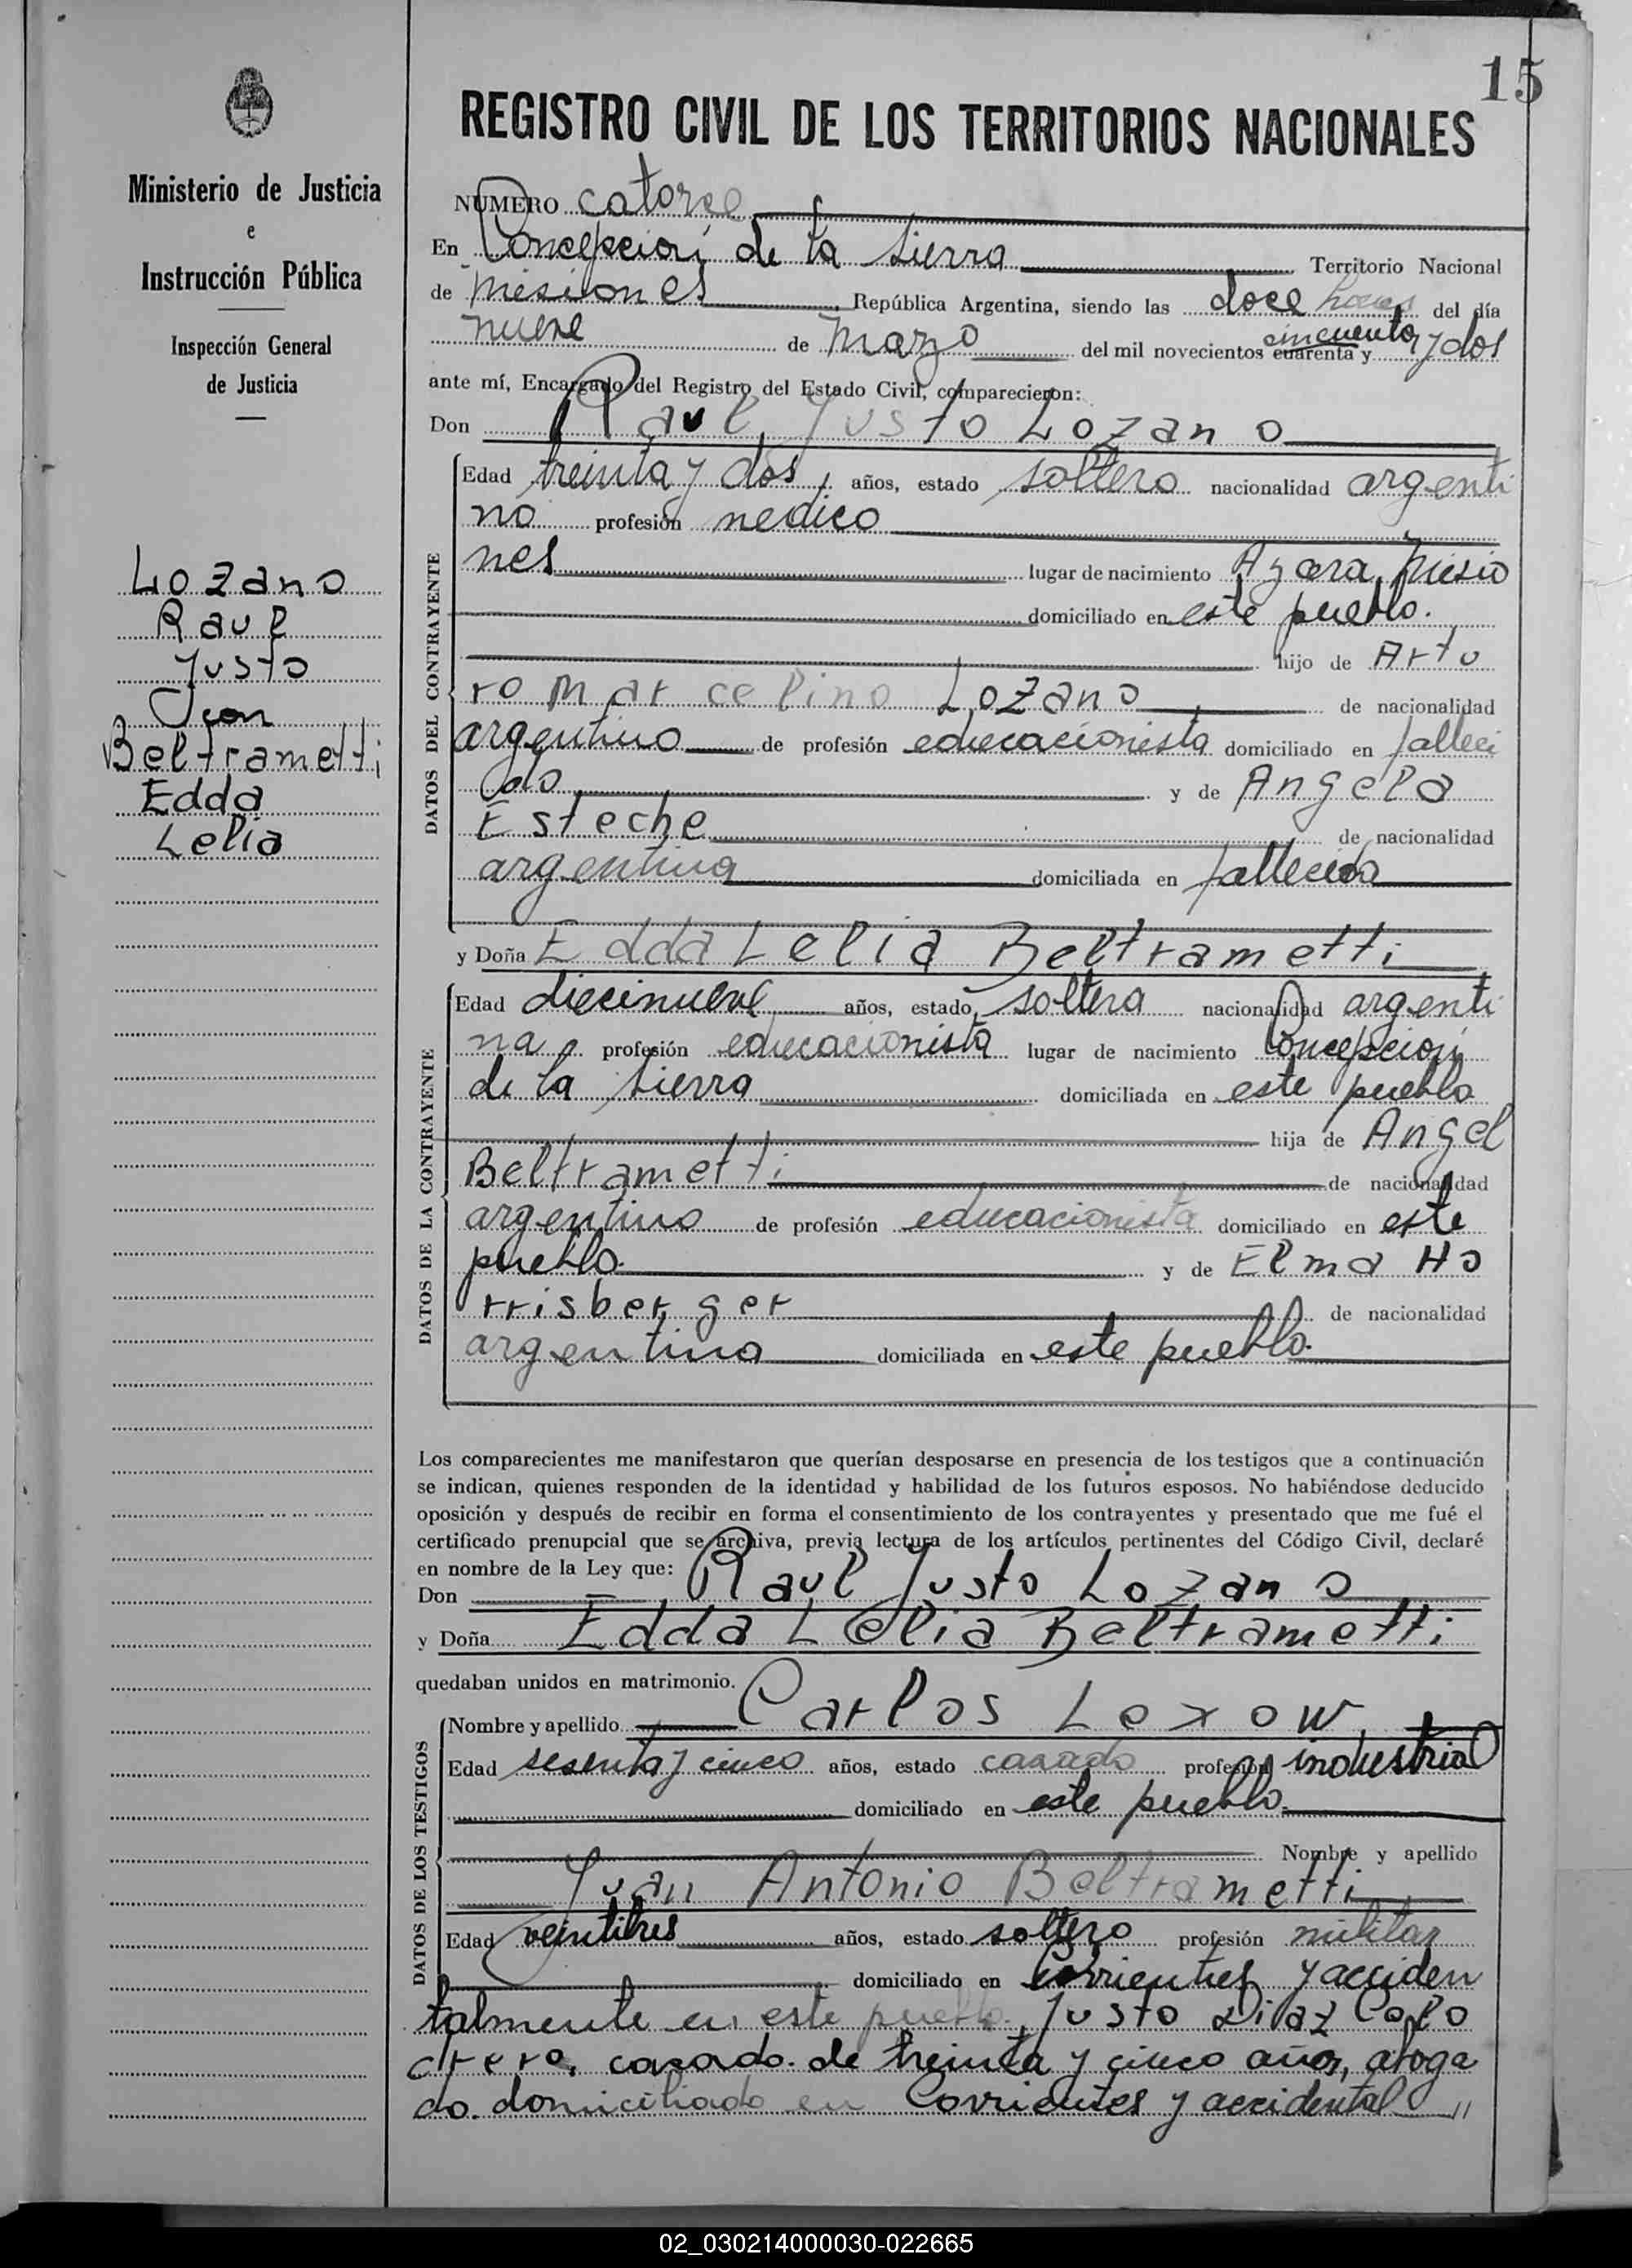 15
Ministerio de Justicia
e
Instrucción Pública
Inspección General
de Justicia
Lozano
Raul
Justo
con
Beltrametti
Edda
Lelia
REGISTRO CIVIL DE LOS TERRITORIOS NACIONALES
NUMERO catorce
En Concepción de la Sierra Territorio Nacional
de Misiones República Argentina, siendo las doce horas del día
nueve de Marzo del mil novecientos cuarenta y cincuenta y dos
ante mí, Encargado del Registro del Estado Civil, comparecieron:
Don Raul Justo Lozano
DATOS DEL CONTRAYENTE
Edad treinta y dos, años, estado soltero nacionalidad argenti
no profesión medico
nes lugar de nacimiento Azara, Misio
domiciliado en este pueblo.
hijo de Artu
ro Marcelino Lozano de nacionalidad
argentino de profesión educacionista domiciliado en falleci
do y de Angela
Esteche de nacionalidad
argentina domiciliada en fallecida
y Doña Edda Lelia Beltrametti
DATOS DE LA CONTRAYENTE
Edad diecinueve años, estado soltera nacionalidad argenti
na profesión educacionista lugar de nacimiento Concepción
de la Sierra domiciliada en este pueblo
hija de Angel
Beltrametti de nacionalidad
argentino de profesión educacionista domiciliado en este
pueblo. y de Elma Ho
rrisberger de nacionalidad
argentina domiciliada en este pueblo.
Los comparecientes me manifestaron que querían desposarse en presencia de los testigos que a continuación
se indican, quienes responden de la identidad y habilidad de los futuros esposos. No habiéndose deducido
oposición y después de recibir en forma el consentimiento de los contrayentes y presentado que me fué el
certificado prenupcial que se archiva, previa lectura de los artículos pertinentes del Código Civil, declaré
en nombre de la Ley que:
Don Raul Justo Lozano
y Doña Edda Lelia Beltrametti
quedaban unidos en matrimonio.
DATOS DE LOS TESTIGOS
Nombre y apellido Carlos Lexow
Edad sesenta y cinco años, estado casado profesión industrial
domiciliado en este pueblo.
Nombre y apellido
Juan Antonio Beltrametti
Edad veintitres años, estado soltero profesión militar
domiciliado en Corrientes y acciden
talmente en este pueblo, Justo Diaz Colo
drero, casado. de treinta y cinco años, aboga
do. domiciliado en Corrientes y accidental "
02_030214000030-022665